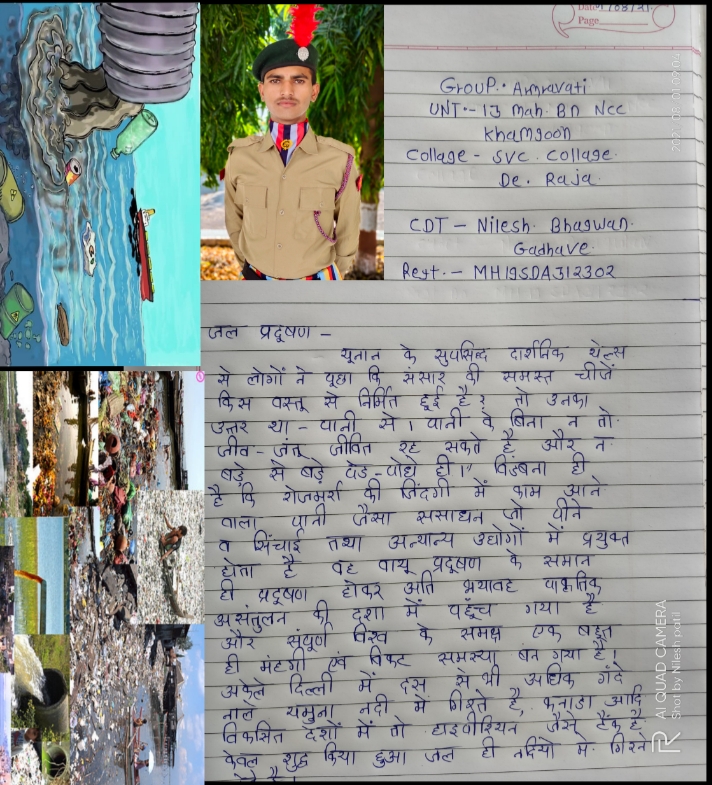 Date 1/08/21
Page
Group:- Amravati
UNT:- 13 Mah. Bn Ncc
khamgoon
Collage - SVC. Collage.
De. Raja.
CDT - Nilesh Bhagwan.
Gadhave.
Regt. - MH19SDA312302
जल प्रदूषण -
यूनान के सुप्रसिद्ध दार्शनिक थेल्स
से लोगों ने पूछा कि संसार की समस्त चीजें
किस वस्तू से निर्मित हूई है? तो उनका
उत्तर था - पानी से। पानी के बिना न तो.
जीव - जंतू जीवित रह सकते है और न.
बड़े से बड़े पेड़ - पौधे ही।" विडंबना ही
है कि रोजमर्रा की जिंदगी में काम आने
वाला पानी जैसा ससाधन जो पीने
व सिंचाई तथा अन्यान्य उद्योगों में प्रयुक्त
होता है वह वायू प्रदूषण के समान
ही प्रदूषण होकर अति भयावह प्राकृतिक
असंतुलन की दशा में पहूँच गया है
और संपूर्ण विश्व के समक्ष एक बहूत
ही मंहगी एवं विकट समस्या बन गया है।
अकेले दिल्ली में दस से भी अधिक गंदे
नाले यमुना नदी में गिरते है, कनाडा आदि
विकसित देशों में तो हाइपीरियन जैसे टैंक है,
केवल शुद्ध किया हुआ जल ही नदियों में गिरने
AI QUAD CAMERA
Shot by Nilesh patil